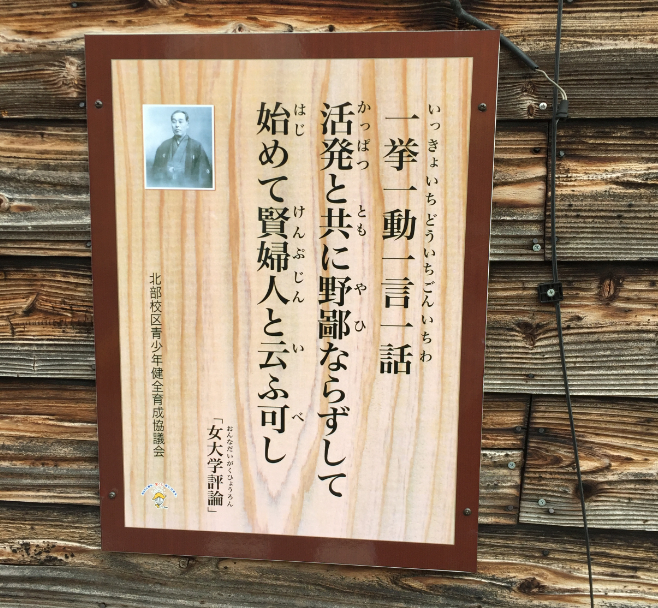 一挙一動一言一話
いっきょいちどういちごんいちわ
活発と共に野鄙ならずして
かっぱつ とも やひ
始めて賢婦人と云ふ可し
はじ けんぷじん い べ
「女大学評論」
おんなだいがくひょうろん
北部校区青少年健全育成協議会